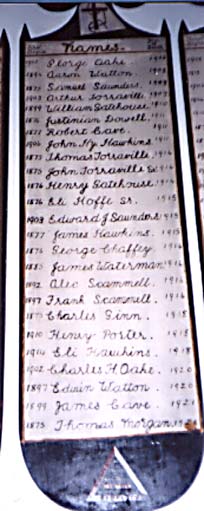 Names.
George Oake. 1900
1894 Aaron Watton. 1908
1875 Samuel Saunders. 1909
1903 Arthur Torraville. 1909
1899 William Gatehouse 1910
1876 Justinian Dowell, 1911
1877 Robert Cave. 1911
1906 John Hy. Hawkins. 1913
1875 Thomas Torraville. 1914
1875 John Torraville Sr. 1914
1876 Henry Gatehouse 1914
1876 Eli Hoffe Sr. 1915
1903 Edward J Saunders 1915
1877 James Hawkins. 1915
1876 George Chaffey 1916
1885 James Waterman 1916
1892 Alec Scammell. 1916
1897 Frank Scammell. 1916
1875 Charles Ginn. 1918
1910 Henry Porter. 1918
1914 Eli Hawkins. 1918
1902 Charles H Oake. 1920
1897 Edwin Watton. 1920
1899 James Cave. 1921
1875 Thomas Morgan